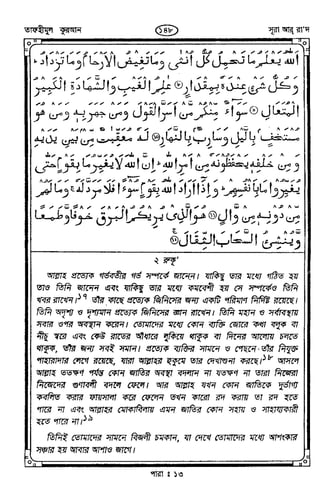 তাফহীমুল কুরআন
১৪৮
সূরা আর্ রা'দ
اَللّٰهُ يَعْلَمُ مَا تَحْمِلُ كُلُّ اُنْثٰى وَمَا تَغِيْضُ الْاَرْحَامُ وَمَا تَزْدَادُ ؕ
وَكُلُّ شَىْءٍ عِنْدَهٗ بِمِقْدَارٍ ۝ عٰلِمُ الْغَيْبِ وَالشَّهَادَةِ الْكَبِيْرُ
الْمُتَعَالِ ۝ سَوَآءٌ مِّنْكُمْ مَّنْ اَسَرَّ الْقَوْلَ وَمَنْ جَهَرَ بِهٖ وَمَنْ هُوَ
مُسْتَخْفٍۭ بِالَّيْلِ وَسَارِبٌۢ بِالنَّهَارِ ۝ لَهٗ مُعَقِّبٰتٌ مِّنْۢ بَيْنِ يَدَيْهِ
وَمِنْ خَلْفِهٖ يَحْفَظُوْنَهٗ مِنْ اَمْرِ اللّٰهِ ؕ اِنَّ اللّٰهَ لَا يُغَيِّرُ مَا بِقَوْمٍ حَتّٰى
يُغَيِّرُوْا مَا بِاَنْفُسِهِمْ ؕ وَاِذَآ اَرَادَ اللّٰهُ بِقَوْمٍ سُوْٓءًا فَلَا مَرَدَّ لَهٗ ۚ وَمَا لَهُمْ
مِّنْ دُوْنِهٖ مِنْ وَّالٍ ۝ هُوَ الَّذِىْ يُرِيْكُمُ الْبَرْقَ خَوْفًا وَّطَمَعًا
وَّيُنْشِئُ السَّحَابَ الثِّقَالَ ۝
২ রুকূ'
আল্লাহ প্রত্যেক গর্ভবতীর গর্ভ সম্পর্কে জানেন। যাকিছু তার মধ্যে গঠিত হয়
তাও তিনি জানেন এবং যাকিছু তার মধ্যে কমবেশী হয় সে সম্পর্কেও তিনি
খবর রাখেন।১৭ তাঁর কাছে প্রত্যেক জিনিসের জন্য একটি পরিমাণ নির্দিষ্ট রয়েছে।
তিনি অদৃশ্য ও দৃশ্যমান প্রত্যেক জিনিসের জ্ঞান রাখেন। তিনি মহান ও সর্বাবস্থায়
সবার ওপর অবস্থান করেন। তোমাদের মধ্যে কোন ব্যক্তি জোরে কথা বলুক বা
নীচু স্বরে এবং কেউ রাতের আঁধারে লুকিয়ে থাকুক বা দিনের আলোয় চলতে
থাকুক, তাঁর জন্য সবই সমান। প্রত্যেক ব্যক্তির সামনে ও পেছনে তাঁর নিযুক্ত
পাহারাদার লেগে রয়েছে, যারা আল্লাহর হুকুমে তার দেখাশুনা করছে।১৮ আসলে
আল্লাহ ততক্ষণ পর্যন্ত কোন জাতির অবস্থা বদলান না যতক্ষণ না তারা নিজেরা
নিজেদের গুণাবলী বদলে ফেলে। আর আল্লাহ যখন কোন জাতিকে দুর্ভাগ্য
কবলিত করার ফায়সালা করে ফেলেন তখন কারো রদ করায় তা রদ হতে
পারে না এবং আল্লাহর মোকাবিলায় এমন জাতির কোন সহায় ও সাহায্যকারী
হতে পারে না।১৯
তিনিই তোমাদের সামনে বিজলী চমকান, যা দেখে তোমাদের মধ্যে আশংকার
সঞ্চার হয় আবার আশাও জাগে।
পারা : ১৩